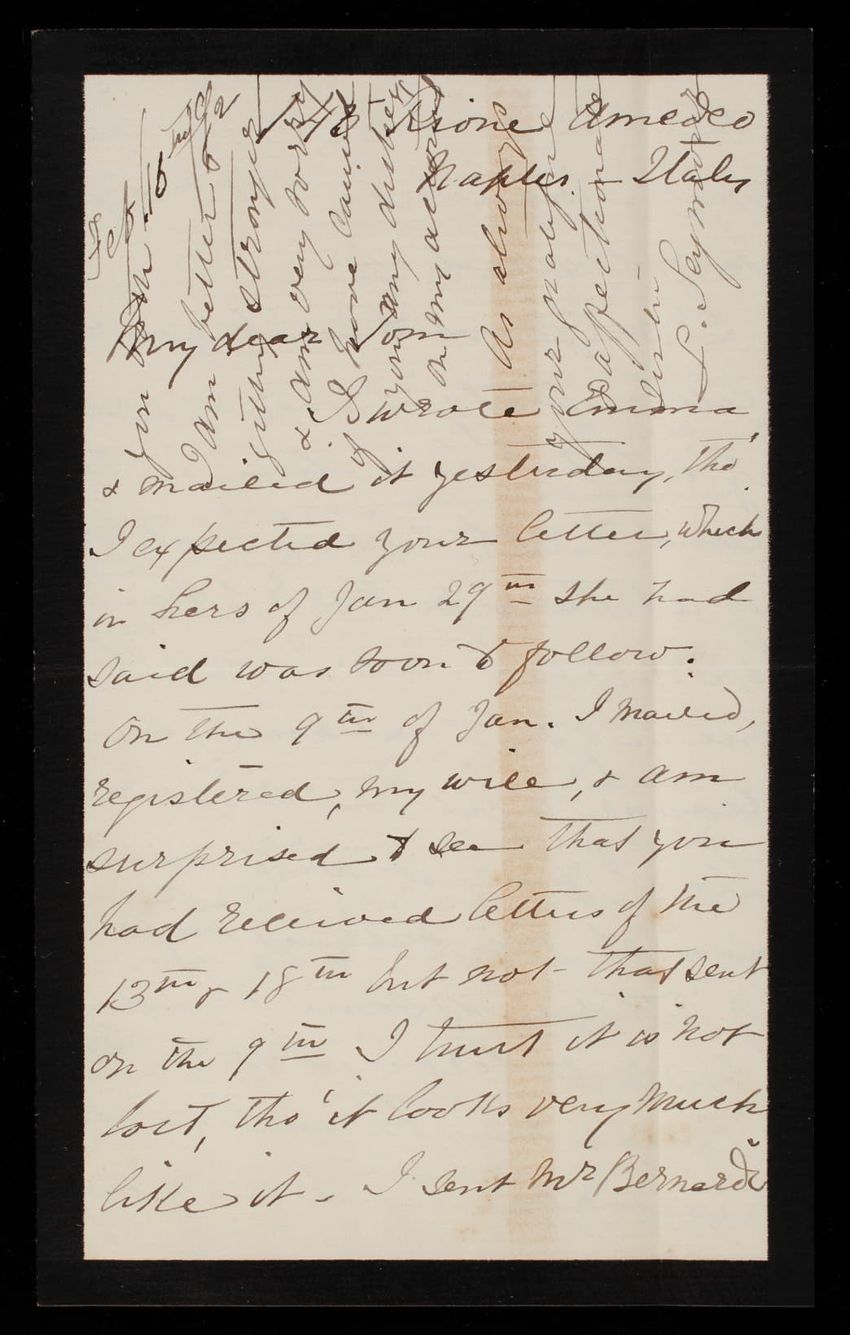 148 Rione Amedeo
Naples. - Italy
My dear Tom
I wrote Emma
& mailed it yesterday, tho'
I expected your letter, which
in hers of Jan 29th she had
said was soon to follow.
On the 9th of Jan. I mailed,
registered, my will, & am
surprised to see that you
had received letters of the
13th & 18th but not that sent
on the 9th I trust it is not
lost, tho' it looks very much
like it - I sent Mr Bernard's
I am better &
getting stronger
& am very sorry
to have caused
you any distress
on my account
As always
your
affectionate
sister
L. Seymour